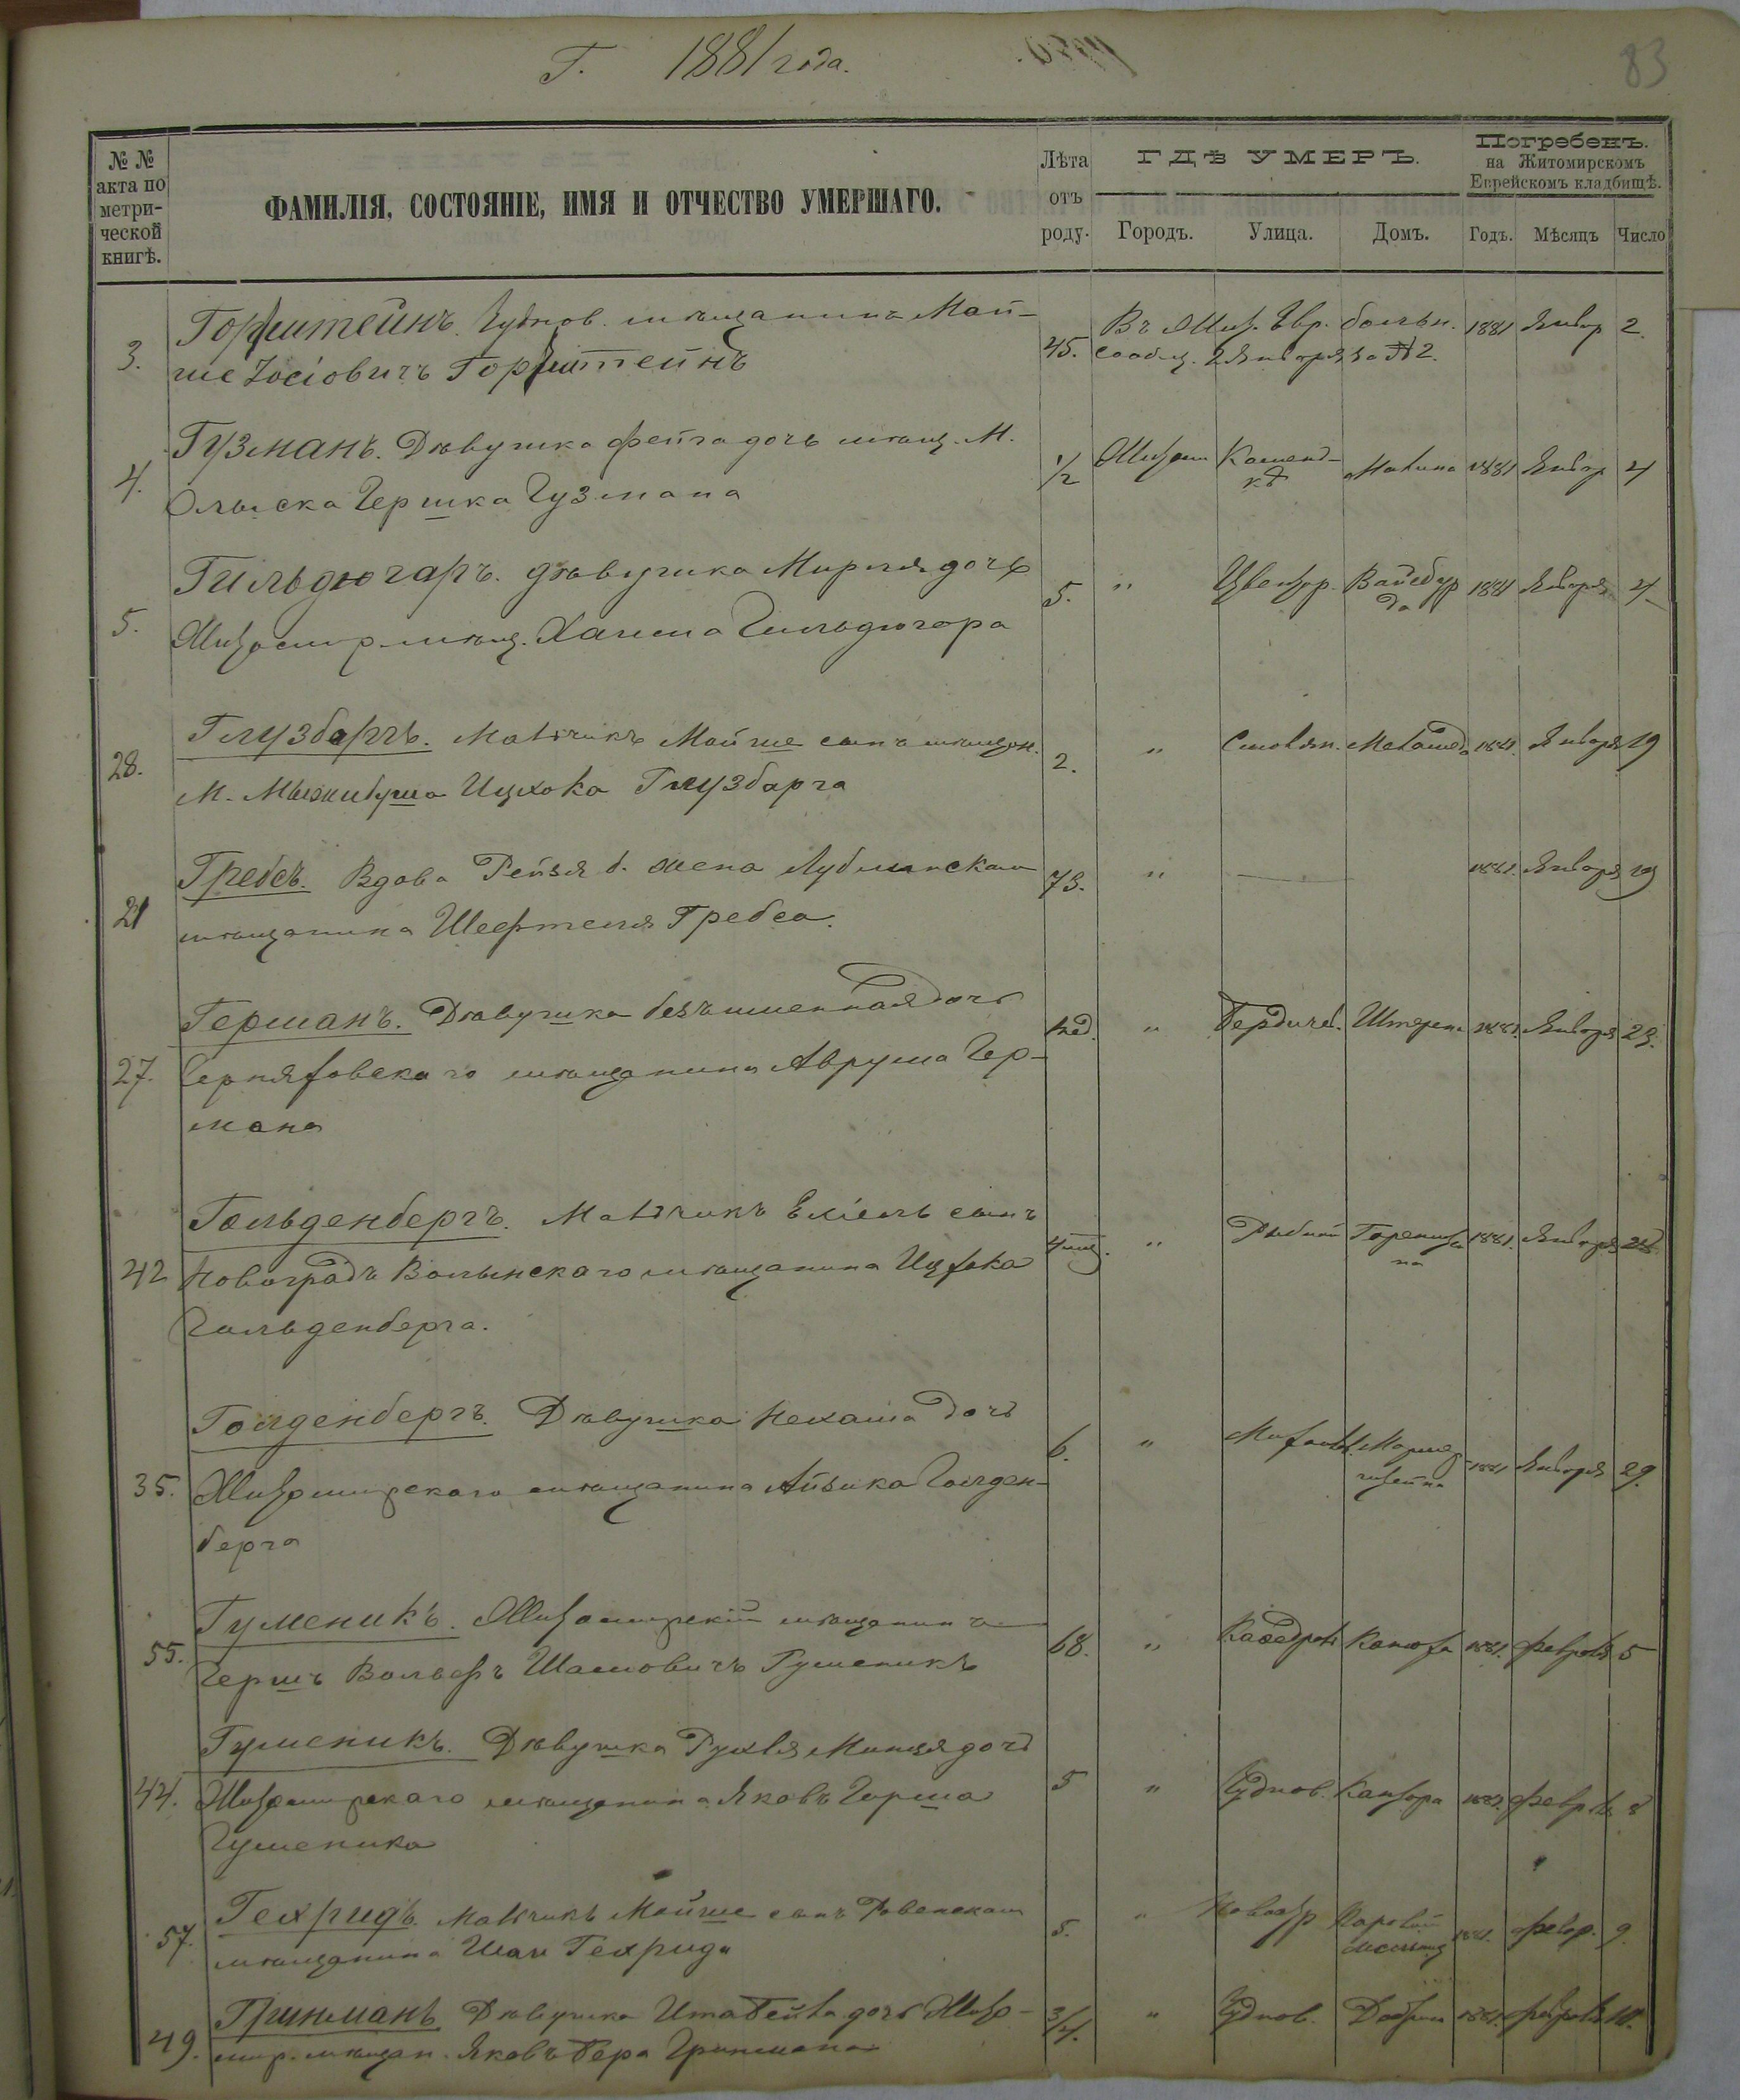 Г. 1881 года.
83
№ № акта по метрической книгѣ.
ФАМИЛІЯ, СОСТОЯНІЕ, ИМЯ И ОТЧЕСТВО УМЕРШАГО.
Лѣта отъ роду.
ГДѢ УМЕРЪ.
Городъ. Улица. Домъ.
Погребенъ.
на Житомирскомъ
Еврейскомъ кладбищѣ.
Годъ. Мѣсяцъ Число
Горштейнъ. Чуднов. мѣщанинъ Мой-
3. ше Іосіовичъ Горштейнъ
45. Въ Жит. Евр. больн. 1881 Январ 2.
сообщ. 2 Января за № 2.
Гузманъ. Дѣвушка Фейга дочь мѣщ. М.
4. Олыска Гершка Гузмана
1/2 Житом 1881 Январ 4
Гильдюгаръ. дѣвушка Мирля дочь
5. Житомир. мѣщ. Хаима Гильдюгара
5. " 1881 Января 4
Глузбаргъ. Мальчикъ Мойше сынъ мѣщан.
28. М. Мижибужа Ицхока Глузбарга
2. " 1881. Января 19
Гребсъ. Вдова Рейзя б. жена Лубминскаго
21 мѣщанина Шефтеля Гребса.
73. " — 1881. Января 19
Германъ. Дѣвушка безъименная дочь
27. Черняховскаго мѣщанина Аврума Гер-
мана
нед. " Бердичев. Штерена 1881. Января 23.
Гольденбергъ. Мальчикъ Еліель сынъ
42 Новоградъ Волынскаго мѣщанина Ицхока
Гольденберга.
4 мѣс. " Рыбная 1881. Января 28
Голденбергъ. Дѣвушка Нехама дочь
35. Житомирскаго мѣщанина Айзика Голден-
берга
6. " Михайлов. 1881 Января 29.
Гуменикъ. Житомирскій мѣщанинъ
55. Гершъ Вольфъ Шамовичъ Гуменикъ
68. " Кафедрал 1881. Февраля 5
Гуменикъ. Дѣвушка Рухля Минця дочь
44. Житомирскаго мѣщанина Яковъ Герша
Гуменика
5 " Чуднов. Кантора 1881. Февраля 8
Гехридъ. Мальчикъ Мойше сынъ Ровенскаго
57. мѣщанина Шаи Гехрида
5. " 1881. Февр. 9.
Гринманъ Дѣвушка Ита Бейла дочь Жито-
49. мир. мѣщан. Яковъ Бера Гринмана
3/4. " Чуднов. 1881. Февраля 10.